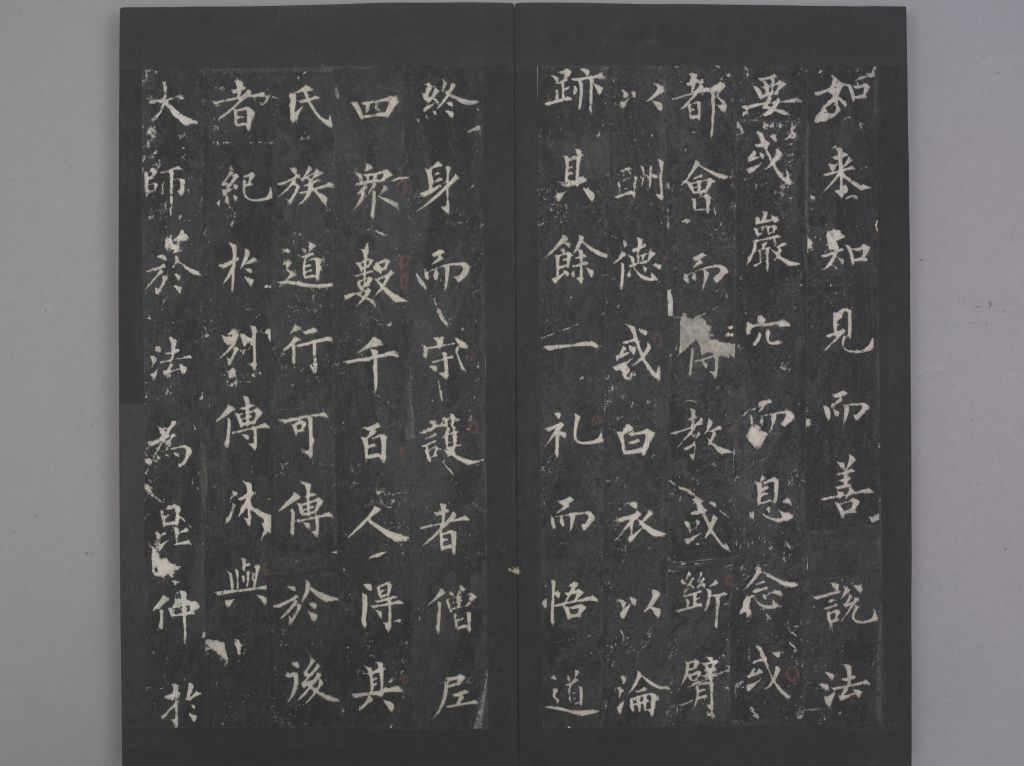 如来知見而善說法
要或巖穴而息念或
都會而教或斷臂
以酬德或白衣以淪
跡其餘一礼而悟道
終身而守護者僧尼
四衆數千百人得其
氏族道行可傳於後
者紀於別傳休與
大師於法為昆仲於